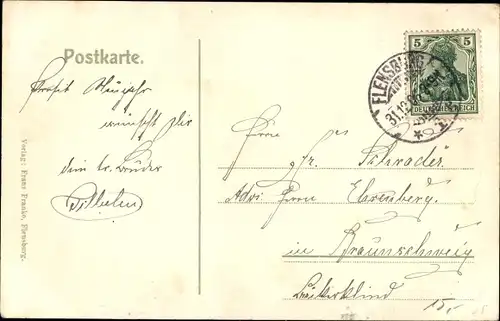 Postkarte.
Prosit Neujahr
wünscht Dir
dein tr. Bruder
Wilhelm
Verlag: Franz Franke, Flensburg.
5 5
DEUTSCHES REICH
FLENSBURG
31.12
Herrn
Schrader
Adr. Herrn Ehrenberg.
in Braunschweig
15,-